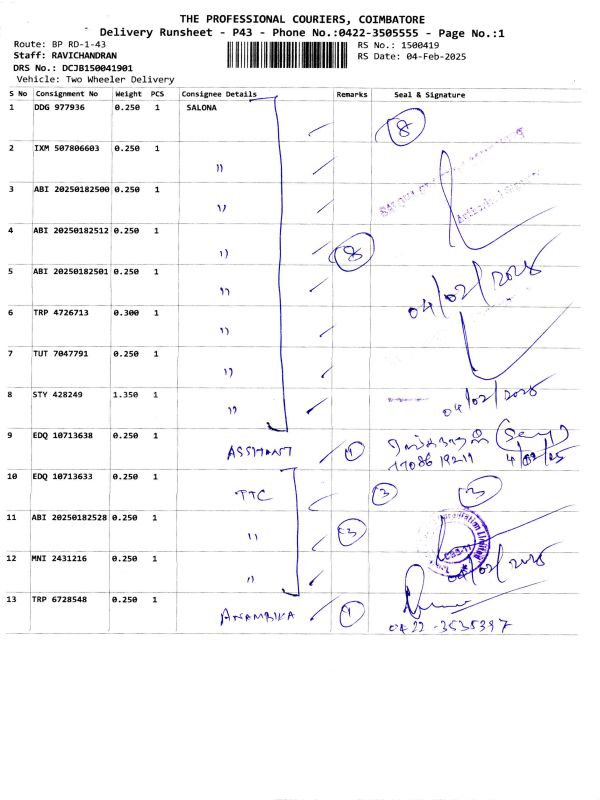 THE PROFESSIONAL COURIERS, COIMBATORE
Delivery Runsheet - P43 - Phone No.:0422-3505555 - Page No.:1
Route: BP RD-1-43 RS No.: 1500419
Staff: RAVICHANDRAN RS Date: 04-Feb-2025
DRS No.: DCJB150041901
Vehicle: Two Wheeler Delivery
S No Consignment No Weight PCS Consignee Details Remarks Seal & Signature
1 DDG 977936 0.250 1 SALONA
8
2 IXM 507806603 0.250 1
"
3 ABI 20250182500 0.250 1
"
4 ABI 20250182512 0.250 1
" 8
5 ABI 20250182501 0.250 1
" 04/02/2025
6 TRP 4726713 0.300 1
"
7 TUT 7047791 0.250 1
"
8 STY 428249 1.350 1
" 04/02/2025
9 EDQ 10713638 0.250 1
1
4/02/25
10 EDQ 10713633 0.250 1
TTC 3 3
11 ABI 20250182528 0.250 1
" 3
12 MNI 2431216 0.250 1
" 04/02/2025
13 TRP 6728548 0.250 1
ANAMBIKA 1
0422-3535397